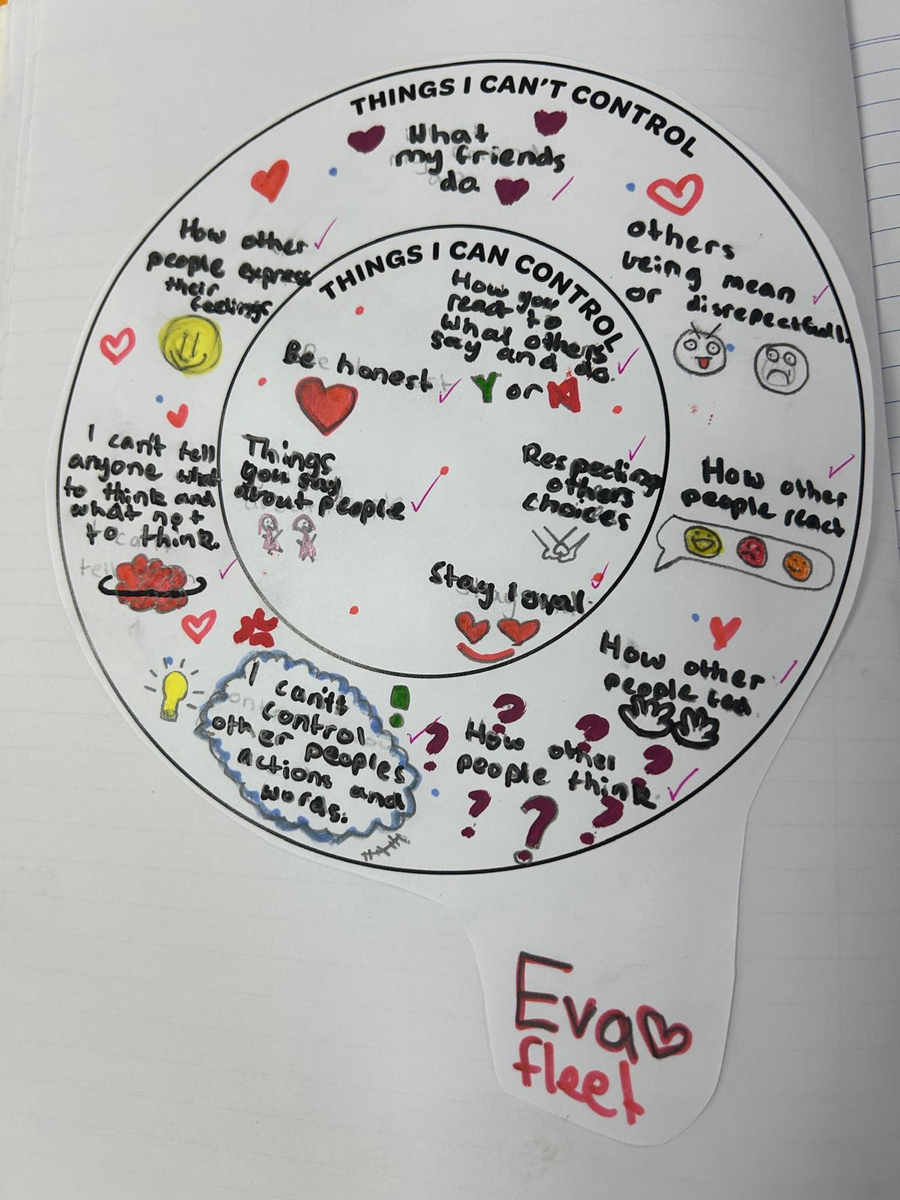 THINGS I CAN'T CONTROL
What
my friends
do
How other
people express
their
feelings
others
being mean
or disrepectful!
I can't tell
anyone what
to think and
what not
to think.
How other
people react
How other
people
I can't
control
other peoples
actions and
words.
How other
people think
THINGS I CAN CONTROL
How you
react to
what others
say and do.
Y or N
Be honest
Things
you say
about people
Respecting
others
choices
Stay loyal.
Eva
fleet